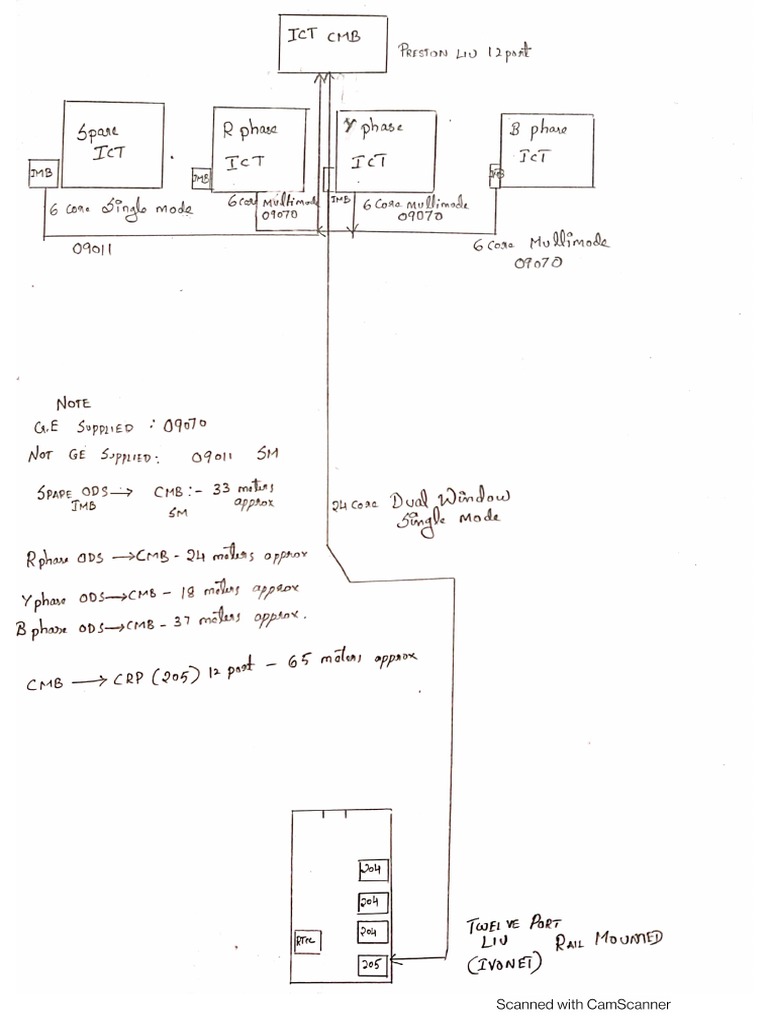 ICT CMB
PRESTON LIU 12 port
Spare
ICT
R phase
ICT
Y phase
ICT
B phase
ICT
IMB
IMB
IMB
6 Core Single mode
6 Core Multimode
09070
6 Core Multimode
09070
6 Core Multimode
09070
09011
NOTE
G.E SUPPLIED : 09070
NOT GE SUPPLIED: 09011 SM
SPARE ODS → CMB :- 33 meters
IMB SM approx
24 core Dual Window
Single Mode
R phase ODS → CMB - 24 meters approx
Y phase ODS → CMB - 18 meters approx
B phase ODS → CMB - 37 meters approx.
CMB → CRP (205) 12 port - 65 meters approx
204
204
204
205
TWELVE PORT
LIU RAIL MOUNTED
(IVONET)
Scanned with CamScanner